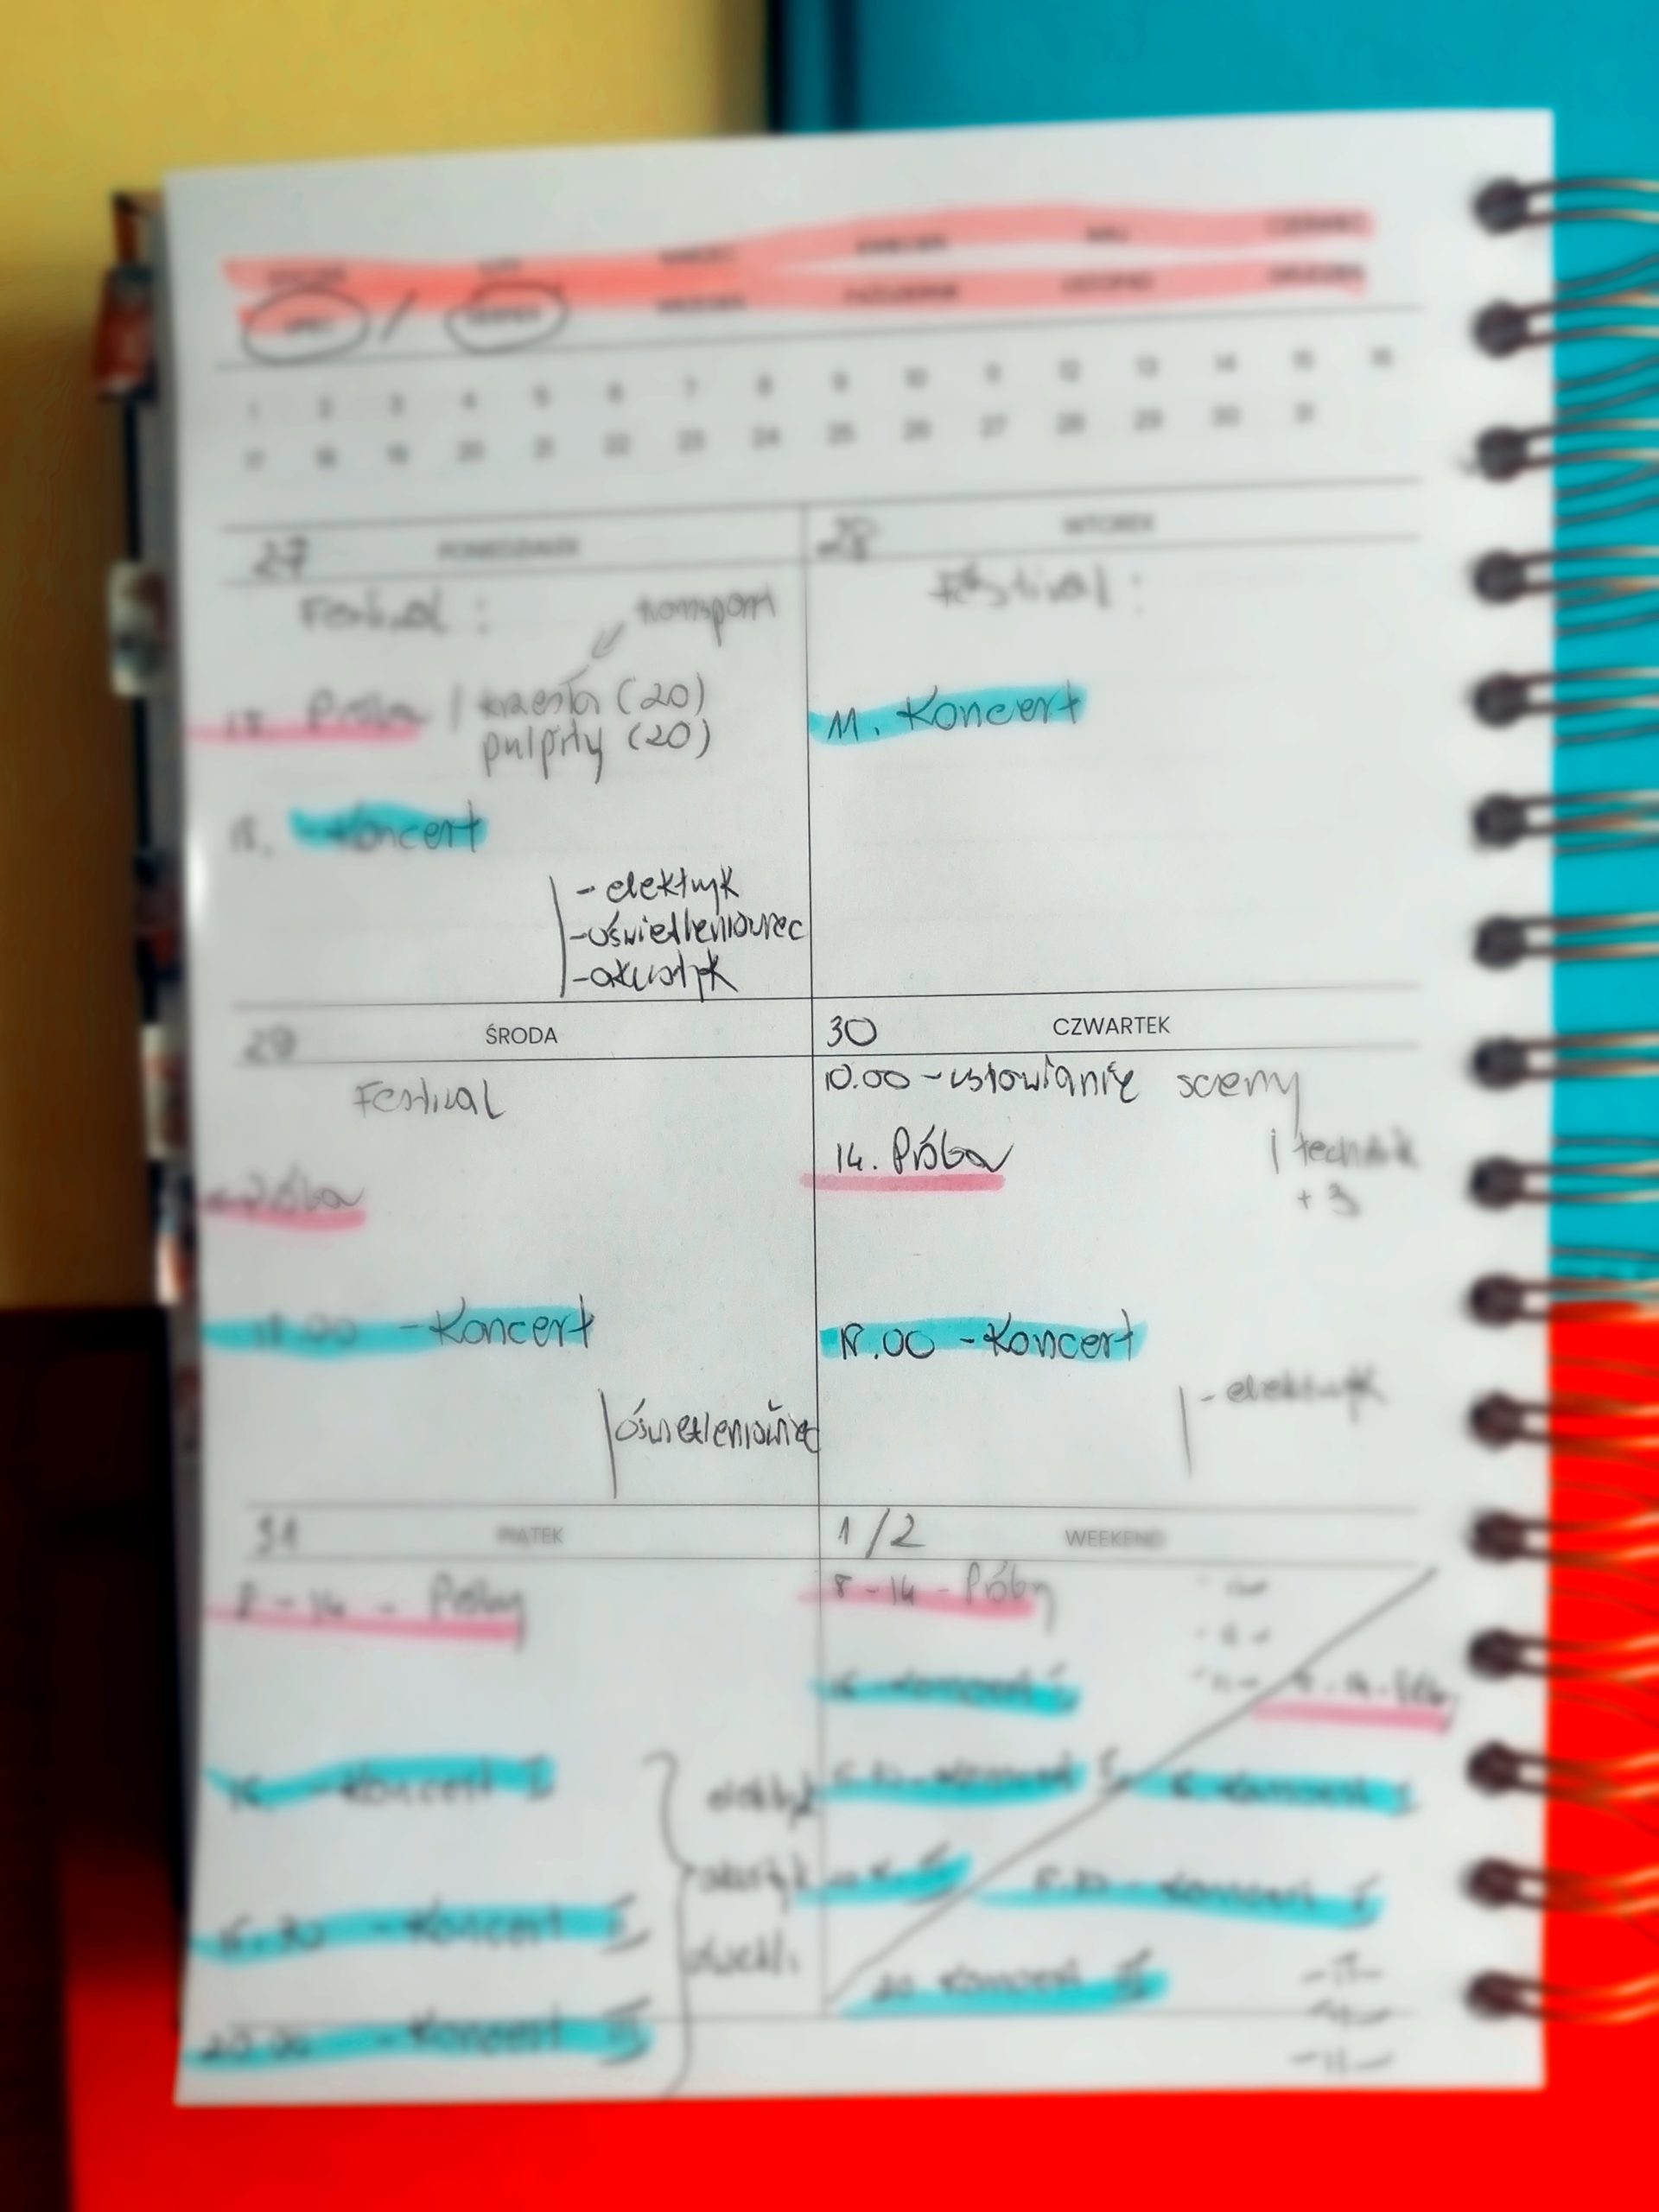 STYCZEŃ LUTY MARZEC KWIECIEŃ MAJ CZERWIEC
LIPIEC / SIERPIEŃ WRZESIEŃ PAŹDZIERNIK LISTOPAD GRUDZIEŃ
1 2 3 4 5 6 7 8 9 10 11 12 13 14 15 16
17 18 19 20 21 22 23 24 25 26 27 28 29 30 31
27 PONIEDZIAŁEK
Festival :
transport
Próba / krzesła (20)
pulpity (20)
18. - Koncert
- elektryk
- oświetleniowiec
- akustyk
28 WTOREK
Festival :
11. Koncert
29 ŚRODA
Festival
- Próba
18.00 - Koncert
oświetleniowiec
30 CZWARTEK
10.00 - ustawianie sceny
14. Próba
technik
+ 3
18.00 - Koncert
- elektryk
31 PIĄTEK
8 - 14 - Próby
- Koncert I
- Koncert II
20.00 - Koncert III
elektryk
akustyk
oświetl.
1/2 WEEKEND
8 - 14 - Próby
- Koncert I
- Koncert II
III
- Koncert I
- Koncert II
20 Koncert III
- 11 -